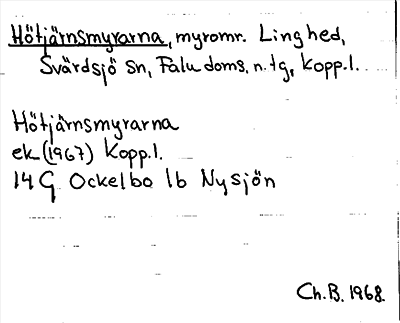 Hötjärnsmyrarna, myromr. Linghed,
Svärdsjö sn, Falu doms. n. tg, Kopp.l.
Hötjärnsmyrarna
ek (1967) Kopp.l.
14G Ockelbo 1b Nysjön
Ch.B. 1968.